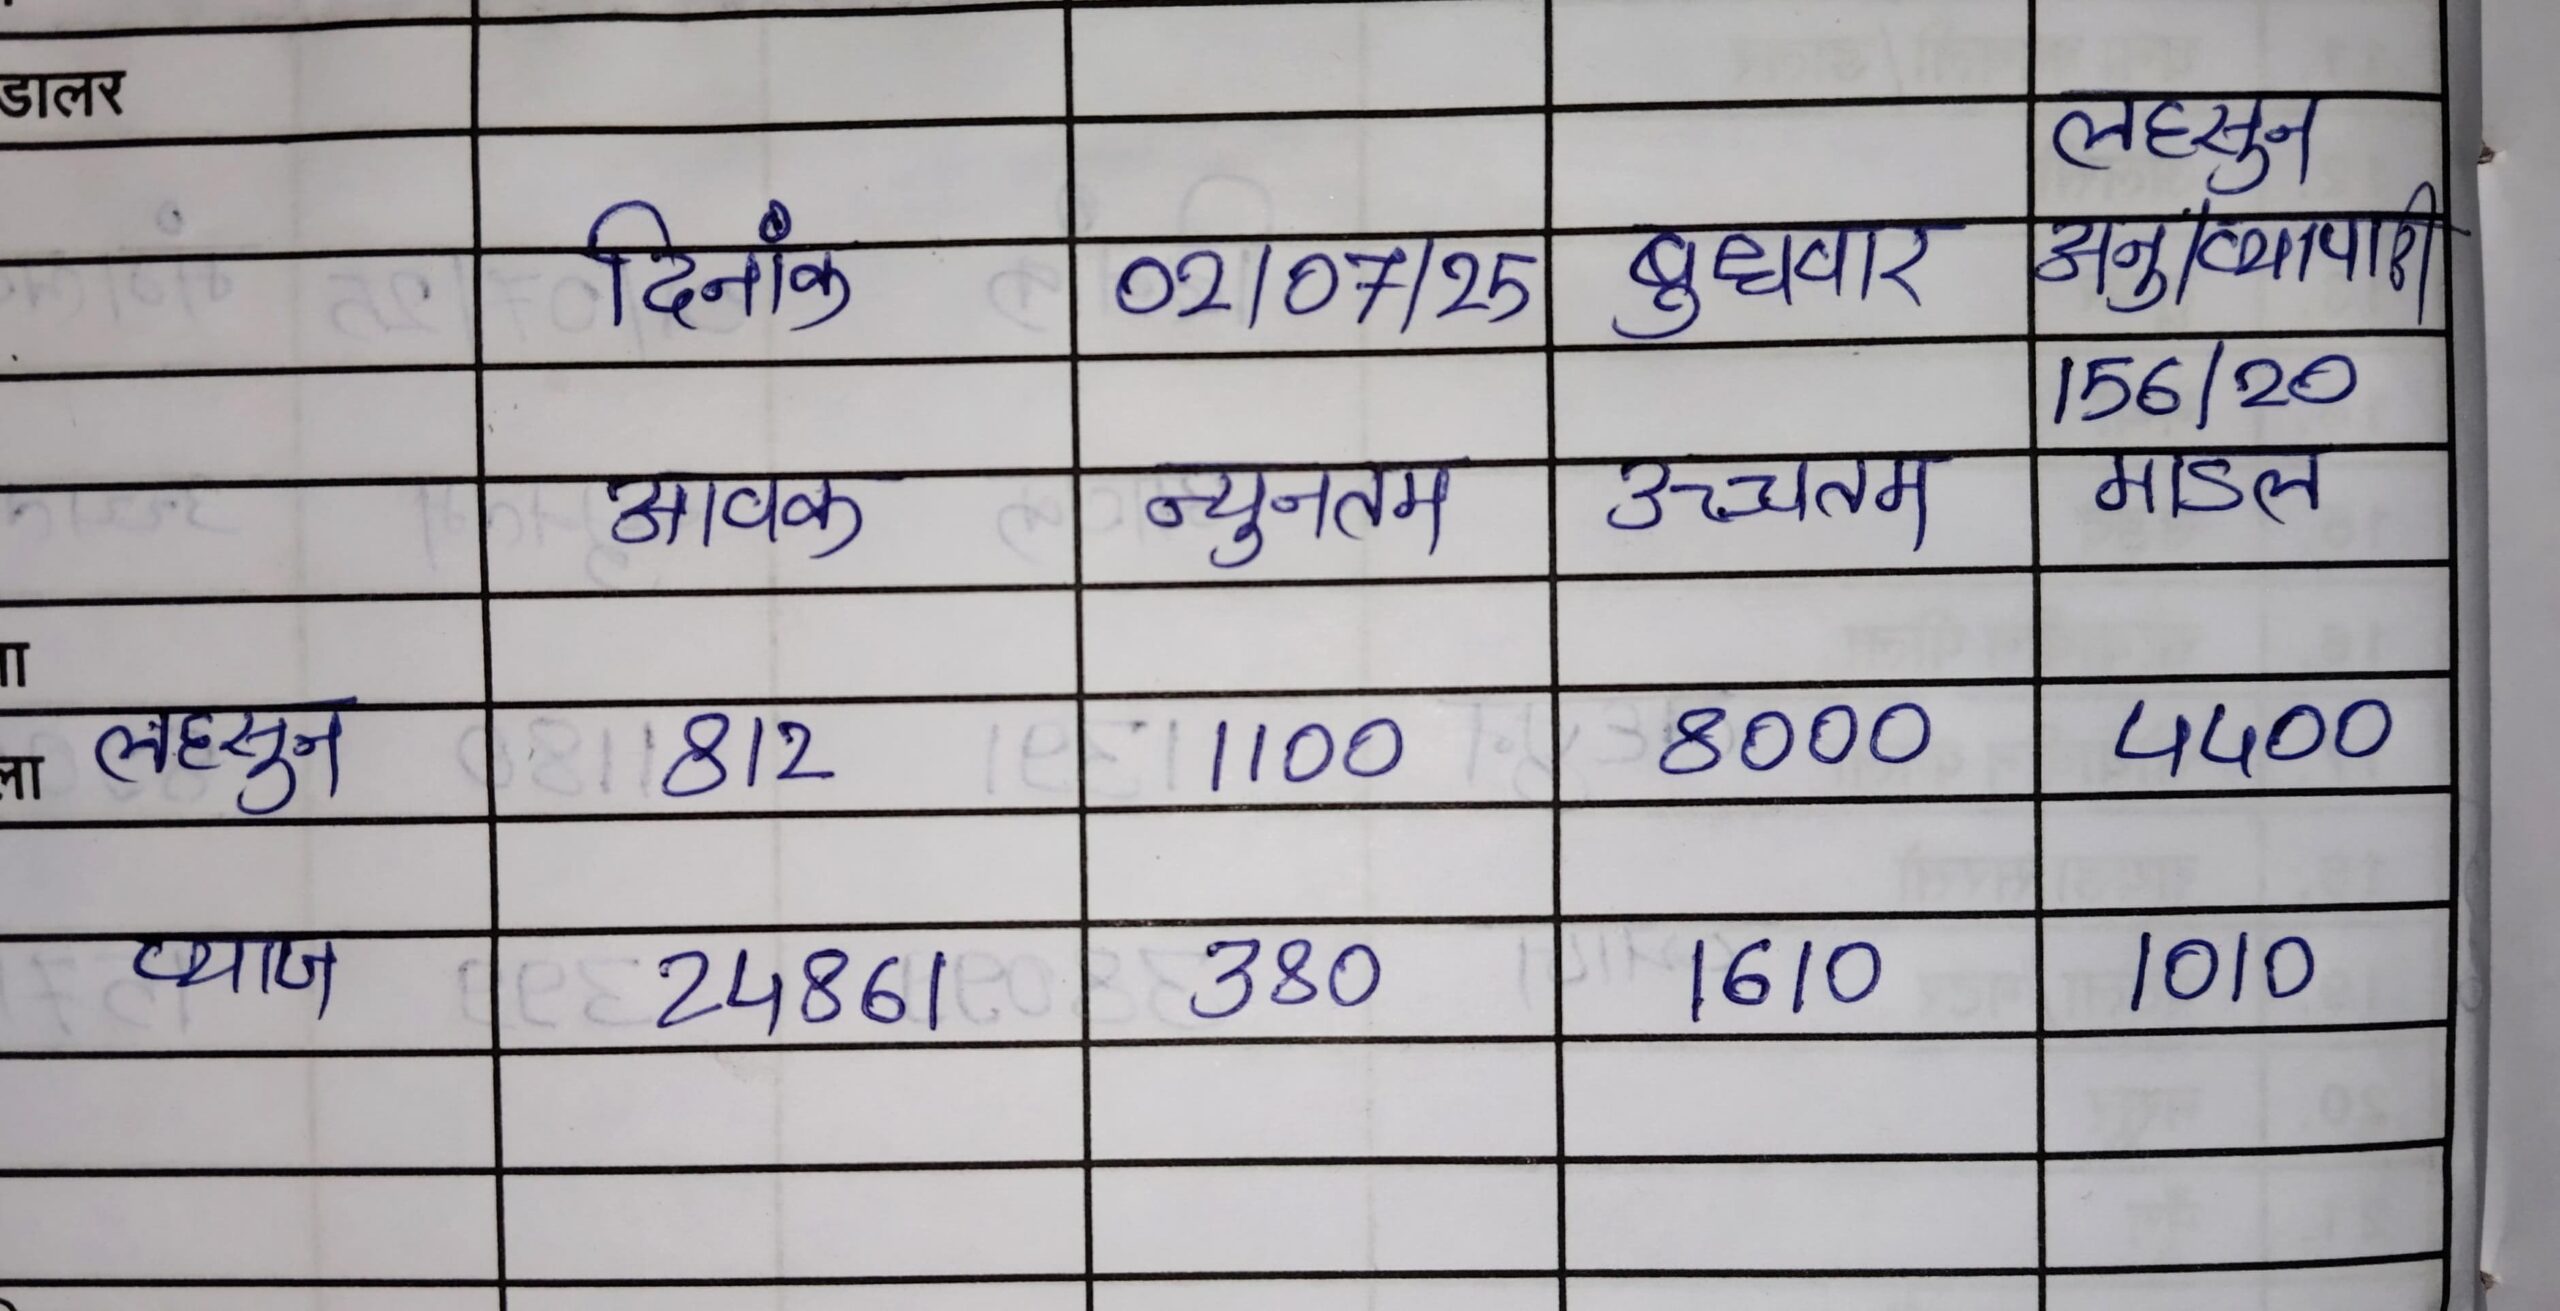 डालर
लहसुन
दिनांक 02/07/25 बुधवार अनु/व्यापारी
156/20
आवक न्युनतम उच्चतम माडल
लहसुन 812 1100 8000 4400
प्याज 24861 380 1610 1010